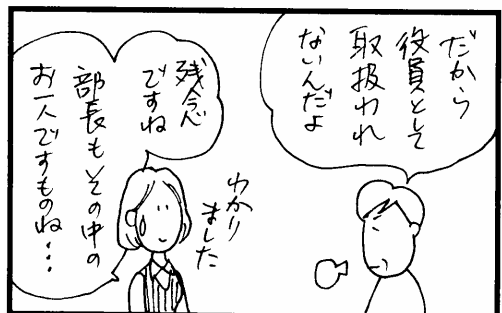 だから
役員として
取扱われ
ないんだよ
わかり
ました
残念
ですね
部長もその中の
お一人ですものね・・・